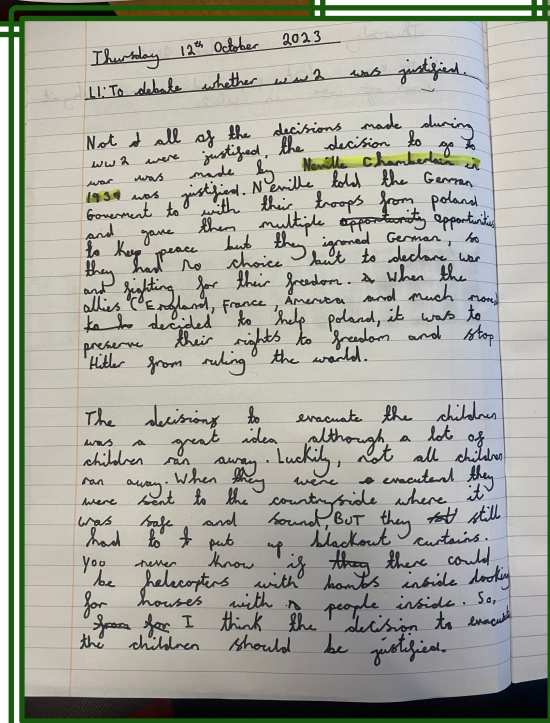 Thursday 12th October 2023
LI: To debate whether ww2 was justified.
Not all of the decisions made during
ww2 were justified, the decision to go to
war was made by Neville Chamberlain in
1939 was justified. Neville told the German
Goverment to with their troops from poland
and gave them multiple opportunity opportunities
to keep peace but they ignored German, so
they had no choice but to declare war
and fighting for their freedom. When the
allies (England, France, America and much more)
decided to help poland, it was to
preserve their rights to freedom and stop
Hitler from ruling the world.
The decision to evacuate the children
was a great idea although a lot of
children ran away. Luckily, not all children
ran away. When they were evacutent they
were sent to the countryside where it
was safe and sound, BUT they still
had to put up blackout curtains.
You never know if they there could
be helecopters with bombs inside looking
for houses with people inside. So,
for I think the decision to evacuate
the children should be justified.